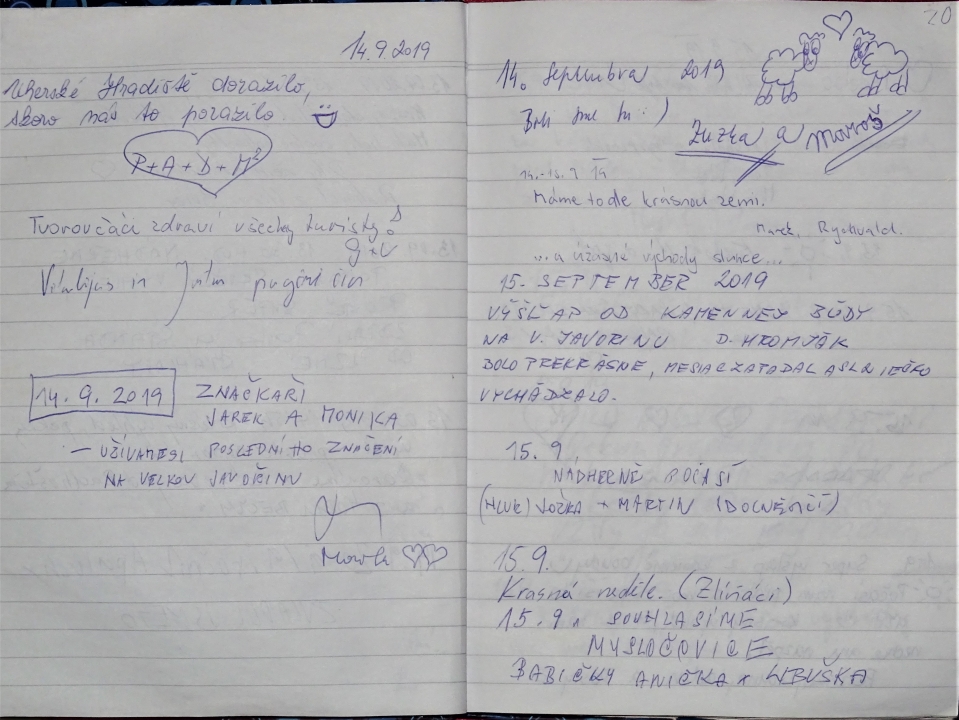 14.9.2019
Uherské Hradiště dorazilo,
skoro nás to porazilo.
P+A+D+M²
Tvorovčáci zdraví všechny turisty!
Vitalijus in
14.9.2019 ZNAČKAŘI
JAREK A MONIKA
- UŽÍVAMESI POSLEDNÍHO ZNAČENÍ
NA VELKOU JAVOŘINU
20
14. Septembra 2019
Boli sme tu :)
Zuzka a Maroš
Máme todle krásnou zemi.
Marek, Rychvald.
...a úžasné východy slunce...
15. SEPTEMBER 2019
VÝŠĽAP OD KAMENNEJ BÚDY
NA V. JAVORINU D. HROMJÁK
BOLO PREKRÁSNE, MESIAC ZAPADAL A SLNIEČKO
VYCHÁDZALO.
15.9.
NÁDHERNÉ POČASÍ
(HLUK) JOŽKA + MARTIN (DOLNĚMČÍ)
15.9.
Krasná neděle. (Zlíňáci)
15.9. SOUHLASÍME
MYSLOČOVICE
BABIČKY ANIČKA + LIBUŠKA